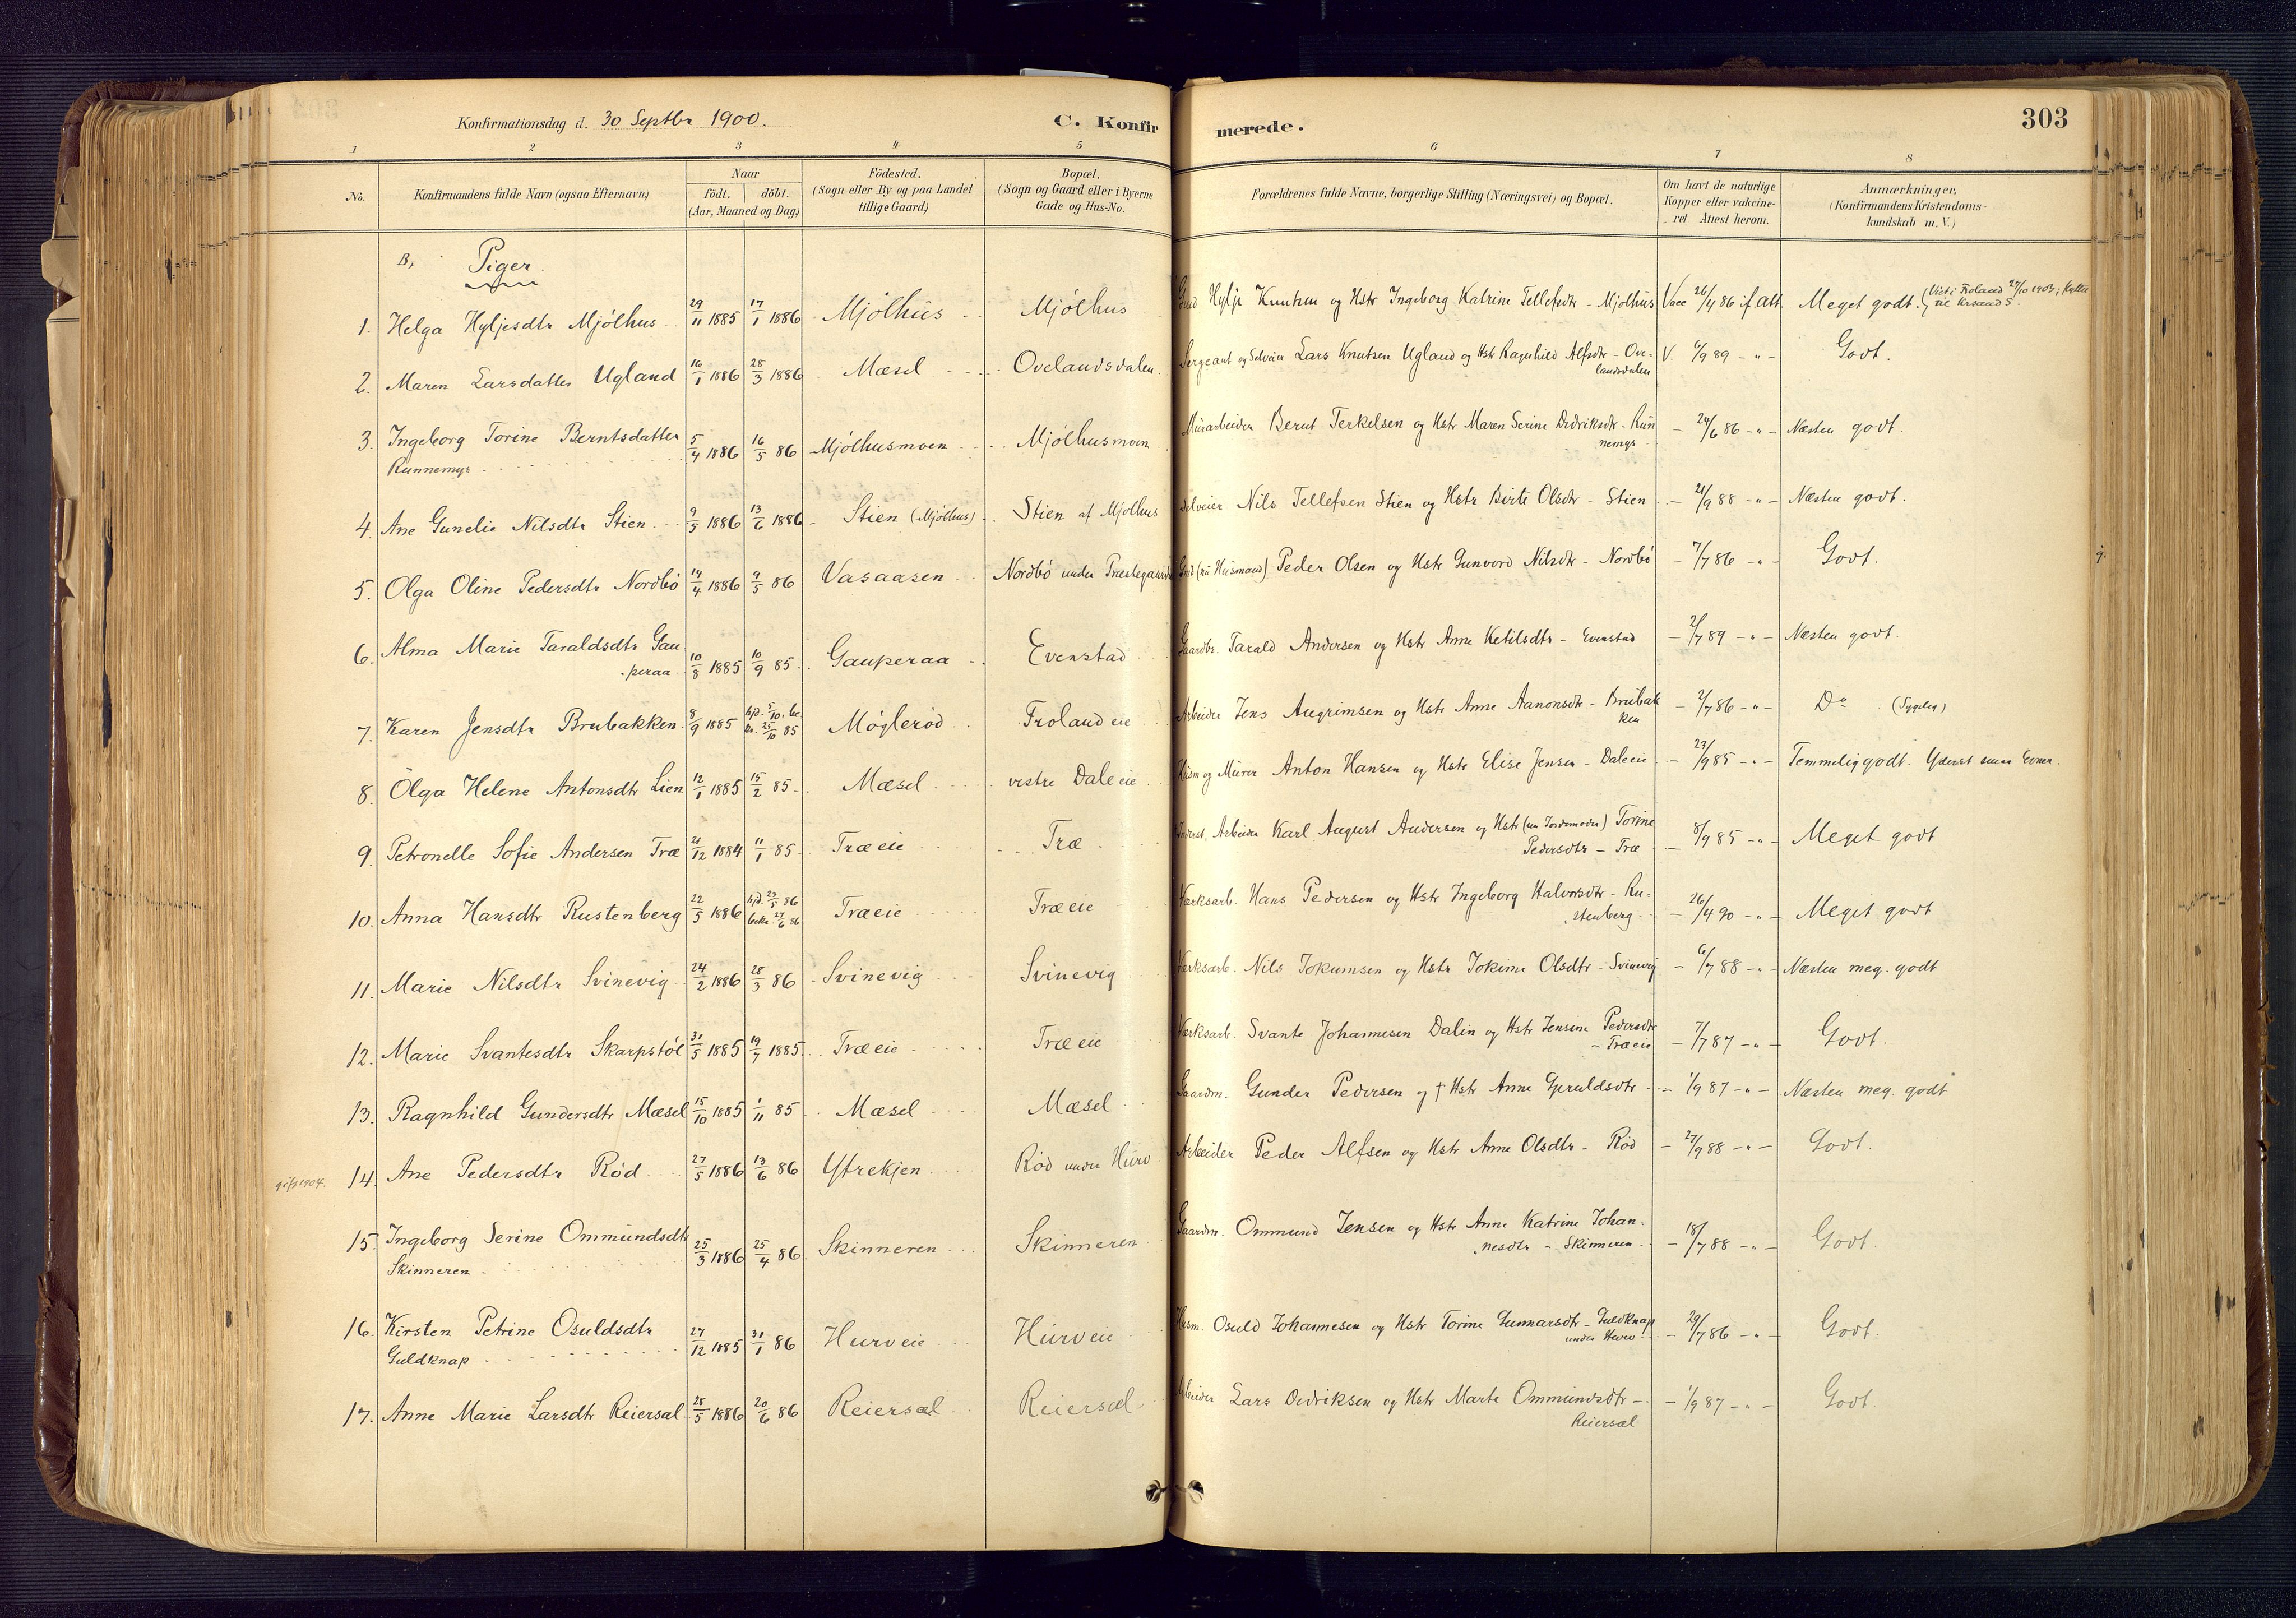 Konfirmationsdag d. 30 Septbr 1900.
C. Konfirmerede.
303
1 2 3 4 5 6 7 8
No.
Konfirmandens fulde Navn (ogsaa Efternavn)
Naar
födt. döbt.
(Aar, Maaned og Dag)
Födested.
(Sogn eller By og paa Landet
tillige Gaard)
Bopæl.
(Sogn og Gaard eller i Byerne
Gade og Hus-No.
Forældrenes fulde Navne, borgerlige Stilling (Næringsvei) og Bopæl.
Om havt de naturlige
Kopper eller vakcine-
ret Attest herom.
Anmærkninger.
(Konfirmandens Kristendoms-
kundskab m. V.)
B, Piger.
1. Helga Hyljesdtr Mjölhus 29/11 1885 17/1 1886 Mjölhus Mjölhus Hylje Knutsen og Hstr Ingeborg Katrine Tellefsdtr - Mjölhus Vacc 26/4 86 if. Att. Meget godt. 
2. Maren Larsdatter Ugland 16/1 1886 28/3 1886 Mæsel Ovelandsdalen Sergeant og Selveier Lars Knutsen Ugland og Hstr Ragnhild Alfsdtr - Ove-
landsdalen V. 6/9 89 - " - Godt.
3. Ingeborg Torine Berntsdatter
Runnemyr 5/4 1886 16/5 86 Mjölhusmoen Mjölhusmoen Murarbeider Bernt Terkelsen og Hstr Maren Serine Didriksdtr - Run
nemyr - 24/6 86 - " - Næsten godt.
4. Ane Gunelie Nilsdtr Stien 9/5 1886 13/6 1886 Stien (Mjölhus) Stien af Mjölhus Selveier Nils Tellefsen Stien og Hstr Birte Olsdtr - Stien - 21/9 88 - " - Næsten godt.
5. Olga Oline Pedersdtr Nordbö 14/4 1886 9/5 86 Vasaasen Nordbö under Præstegaarden (nu Husmand) Peder Olsen og Hstr Gunvord Nilsdtr - Nordbö - 7/7 86 - " - Godt.
6. Alma Marie Taraldsdtr Gau
peraa 10/8 1885 10/9 85 Gauperaa Evenstad Gaardbr. Tarald Andersen og Hstr Anne Ketilsdtr - Evenstad - 2/7 89 - " - Næsten godt.
7. Karen Jensdtr Brubakken 8/9 1885 hjd. 5/10, be-
kr. 25/10 85 Möglerød Froland eie Arbeider Jens Augrimsen og Hstr Anne Aanonsdtr - Brubak
ken - 2/7 86 - " - Do (Sygelig)
8. Olga Helene Antonsdtr Lien 12/1 1885 15/2 85 Mæsel vestre Dale eie Husm og Murer Anton Hansen og Hstr Elise Jensen - Dale eie - 23/9 85 - " - Temmelig godt. Yderst smaa Evner.
9. Petronelle Sofie Andersen Træ 21/12 1884 11/1 85 Træ eie Træ Arbeider Karl August Andersen og Hstr (nu Jordemoder) Torine
Pedersdtr - Træ - 8/9 85 - " - Meget godt
10. Anna Hansdtr Rustenberg 22/5 1886 hjd 23/5 86
bekr. 27/6 86 Træ eie Træ eie Værksarb. Hans Pedersen og Hstr Ingeborg Halvorsdtr - Ru-
stenberg - 26/4 90 - " - Meget godt
11. Marie Nilsdtr Svinevig 24/2 1886 28/3 86 Svinevig Svinevig Værksarb. Nils Jokumsen og Hstr Jokime Olsdtr - Svinevig - 6/7 88 - " - Næsten meg. godt
12. Marie Svantesdtr Skarpstöl 31/5 1885 19/7 1885 Træ eie Træ eie Værksarb. Svante Johannesen Dalin og Hstr Jensine Pedersdtr
- Træ eie - 7/7 87 - " - Godt.
13. Ragnhild Gundersdtr Mæsel 15/10 1885 1/11 85 Mæsel Mæsel Gaardm. Gunder Pedersen og † Hstr Anne Gjeruldsdtr - 1/9 87 - " - Næsten meg. godt
gift 1904. 14. Ane Pedersdtr Röd 27/5 1886 13/6 86 Yttrekjen Röd under Hurv Arbeider Peder Alfsen og Hstr Anne Olsdtr - Röd - 27/9 88 - " - Godt.
15. Ingeborg Serine Ommundsdtr
Skinneren 25/3 1886 25/4 86 Skinneren Skinneren Gaardm. Ommund Jensen og Hstr Anne Katrine Johan-
nesdtr - Skinneren - 18/7 88 - " - Godt.
16. Kirsten Petrine Osuldsdtr
Guldknap 27/12 1885 31/1 86 Hurv eie Hurv eie Husm. Osuld Johannesen og Hstr Torine Gunnarsdtr - Guldknap
under Hurv - 29/7 86 - " - Godt.
17. Anne Marie Larsdtr Reiersæl 28/5 1886 20/6 86 Reiersæl Reiersæl Arbeider Lars Didriksen og Hstr Marte Ommundsdtr -
Reiersæl - 1/9 87 - " - Godt.